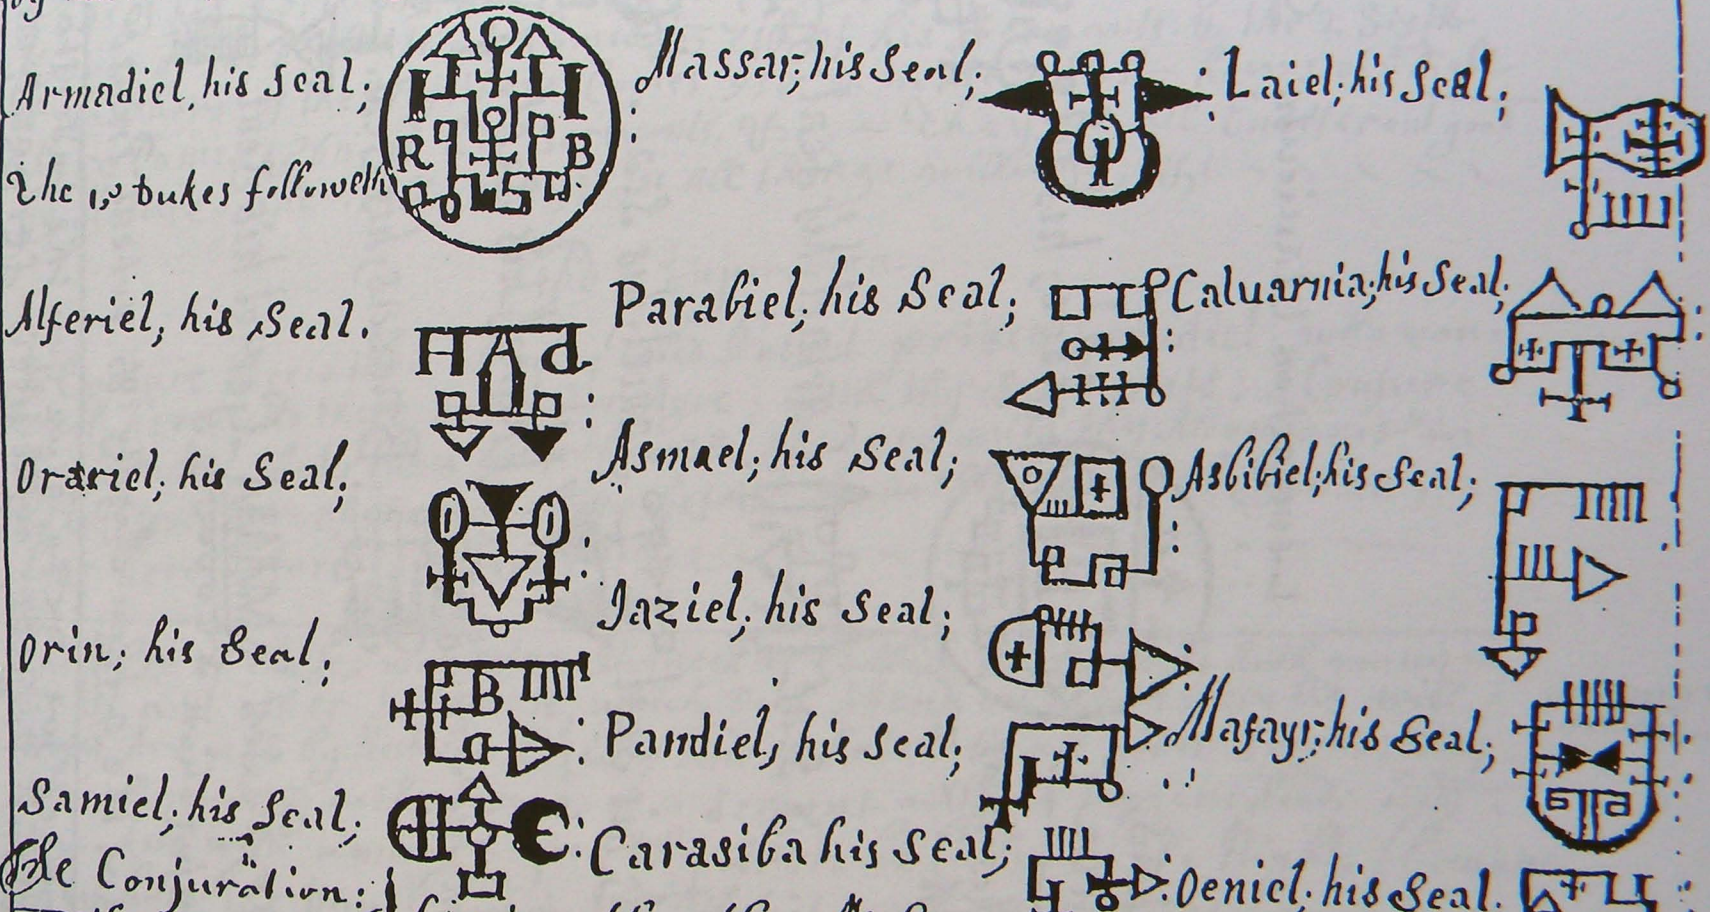 Armadiel, his Seal;
The 15 Dukes followeth
Alferiel, his Seal.
Orariel; his Seal;
Orin; his Seal;
Samiel; his Seal;
The Conjuration:
R B
Massar; his Seal;
Parabiel; his Seal;
Asmael; his Seal;
Jaziel, his Seal;
Pandiel, his Seal;
Carasiba his Seal;
Laiel; his Seal;
Caluarnia; his Seal;
Asbibiel; his Seal;
Mafayr; his Seal;
Oeniel; his Seal.